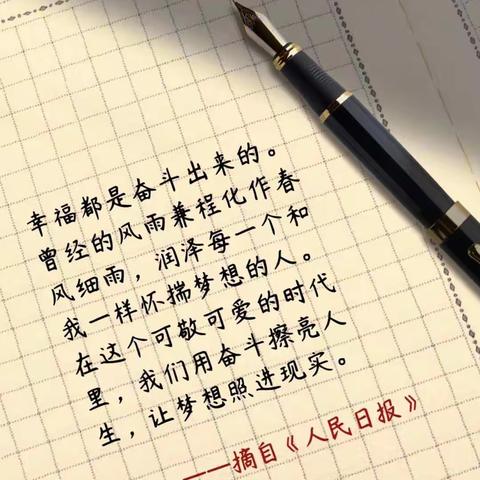 幸福都是奋斗出来的。
曾经的风雨兼程化作春
风细雨，润泽每一个和
我一样怀揣梦想的人。
在这个可敬可爱的时代
里，我们用奋斗擦亮人
生，让梦想照进现实。
——摘自《人民日报》